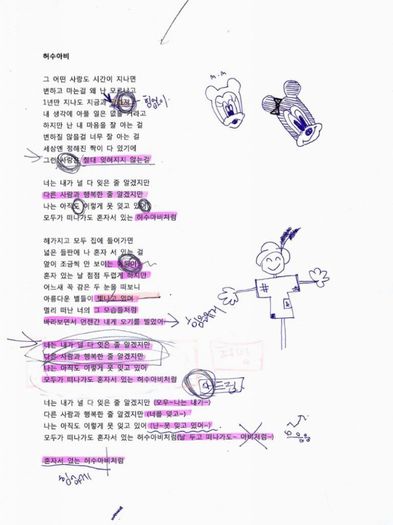 허수아비
그 어떤 사랑도 시간이 지나면
변하고 마는걸 왜 난 모르냐고
1년만 지나도 지금과
내 생각에 아플 일은 없을 거라고
하지만 난 내 마음을 잘 아는 걸
변하질 않을걸 너무 잘 아는 걸
세상엔 정해진 짝이 다 있기에
그런 사랑은 절대 잊혀지지 않는걸
너는 내가 널 다 잊은 줄 알겠지만
다른 사람과 행복한 줄 알겠지만
나는 아직도 이렇게 못 잊고 있어
모두가 떠나가도 혼자서 있는 허수아비처럼
해가지고 모두 집에 들어가면
넓은 들판에 나 혼자 서 있는 걸
앞이 조금씩 안 보이는
혼자 있는 날 점점 두렵게 하지만
어느새 꼭 감은 두 눈을 떠보니
아름다운 별들이 빛나고 있어
멀리 떠난 너의 그 모습들처럼
바라보면서 언젠간 내게 오기를 빌었어
너는 내가 널 다 잊은 줄 알겠지만
다른 사람과 행복한 줄 알겠지만
나는 아직도 이렇게 못 잊고 있어
모두가 떠나가도 혼자서 있는 허수아비처럼
너는 내가 널 다 잊은 줄 알겠지만 (모우~나는 내가~)
다른 사람과 행복한 줄 알겠지만 (너를 잊고~)
나는 아직도 이렇게 못 잊고 있어 (난~못 잊고 있어~)
모두가 떠나가도 혼자서 있는 허수아비처럼(날 두고 떠나가도~ 아비처럼~)
혼자서 있는 허수아비처럼